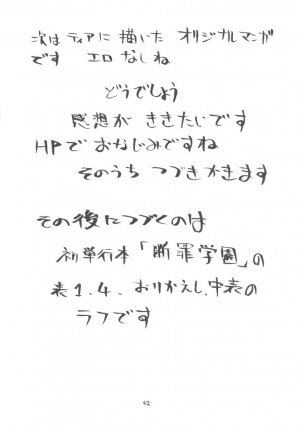 次は ティアに 描いた オリジナルマンガ
です エロ なしね
どうでしょう
感想が ききたいです
HPで おなじみですね
そのうち つづきかきます
その後につづくのは
初単行本「断罪学園」の
表1.4.おりかえし,中表の
ラフです
42